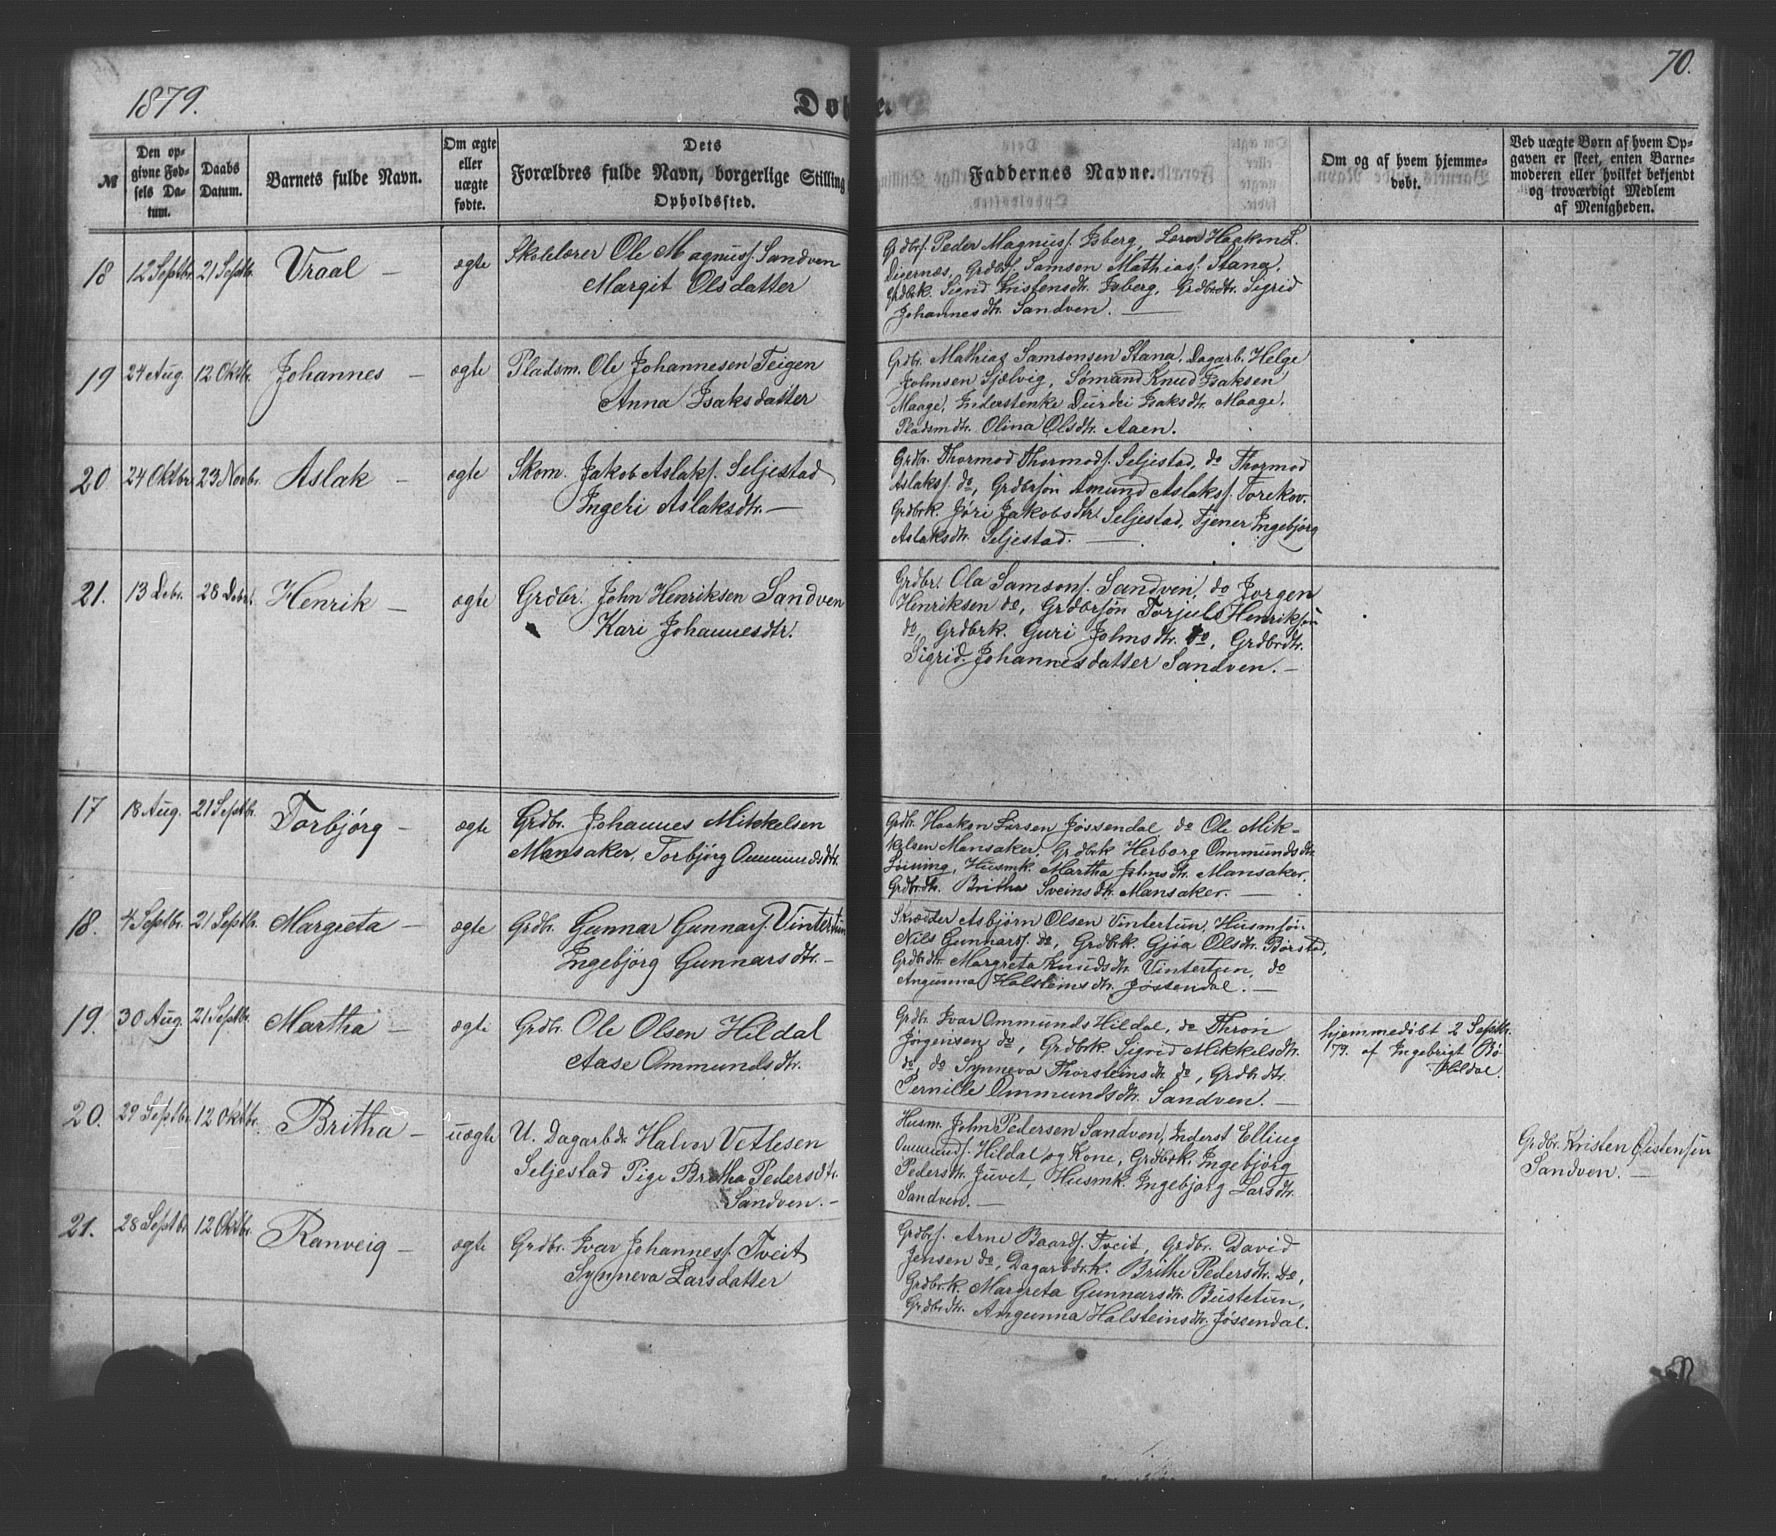 1879.
70.
Døbte.
№
Den op-
givne Fød-
sels Da-
tum.
Daabs
Datum.
Barnets fulde Navn.
Om ægte
eller
uægte
fødte.
Dets
Forældres fulde Navn, borgerlige Stilling
Opholdssted.
Faddernes Navne.
Om og af hvem hjemme-
døbt.
Ved uægte Børn af hvem Op-
gaven er skeet, enten Barne-
moderen eller hvilket bekjendt
og troværdigt Medlem
af Menigheden.
18 12 Septbr. 21 Septbr. Vraal – ægte
Skolelærer Ole Magnuss. Sandven
Margit Olsdatter
Grdbrs. Peder Magnuss. Isberg, Lærer Haakon L.
Digernæs, Grdbrs. Samson Mathiass. Stana,
Grdbrk. Signe Kristensdtr. Isberg, Grdbrdtr. Sigrid
Johannesdtr. Sandven. —
19 24 Aug. 12 Oktbr. Johannes – ægte
Pladsm. Ole Johannesen Teigen
Anna Isaksdatter
Grdbr. Mathias Samsonsen Stana, Dagarb. Helge
Johnsen Sjælvig, Sømand Knud Isaksen
Maage, Inderstenke Durdei Isaksdtr. Maage,
Pladsmdtr. Olina Olsdtr. Aaen.
20 24 Oktbr. 23 Novbr. Aslak – ægte
Skom. Jakob Aslaks. Seljestad
Ingeri Aslaksdtr. —
Grdbr. Thormod Thormods. Seljestad, do Thormod
Aslaks. do, Grdbrsøn Amund Aslaks. Torekov.
Grdbrk. Jøri Jakobsdtr. Seljestad, Tjener Ingebjørg
Aslaksdtr. Seljestad. —
21. 13 Debr. 28 Debr. Henrik – ægte
Grdbr. John Henriksen Sandven
Kari Johannesdtr.
Grdbr. Ola Samsons. Sandven, do Jørgen
Henriksen do, Grdbrsøn Torjuls Henriksøn
do, Grdbrk. Guri Johnsdtr. do, Grdbrdtr.
Sigrid Johannesdatter Sandven. —
17 18 Aug. 21 Septbr. Torbjørg – ægte
Grdbr. Johannes Mikkelsen
Mansaker, Torbjørg Ommundsdtr.
Grdbr. Haakon Larsen Jøssendal, do Ole Mik-
kelsen Mansaker, Grdbrk Herborg Ommundsdtr.
Løining, Husmk. Martha Johnsdtr. Mansaker,
Grdbrdtr. Britha Sveinsdtr. Mansaker. —
18. 4 Septbr. 21 Septbr. Margreta – ægte
Grdbr. Gunnar Gunnars. Vintertun
Ingebjørg Gunnarsdtr. –
Skrædder Asbjørn Olsen Vintertun, Husmsøn
Nils Gunnars. do, Grdbrk Gjøa Olsdtr. Børstad,
Grdbrdtr. Margreta Knudsdtr. Vintertun, do
Angunna Halsteinsdtr. Jøssendal. —
19. 30 Aug. 21 Septbr. Martha – ægte
Grdbr. Ole Olsen Hildal
Aase Ommundsdtr.
Grdbr. Ivar Ommunds Hildal, do Thron
Jørgensen do, Grdbrk. Sigrid Mikkelsdtr.
do, do Synneva Thorsteinsdtr. do, Grdbrdtr.
Pernille Ommundsdtr. Sandven. —
hjemmedøbt 2 Septbr.
79. af Ingebrigt Bø
Hildal.
20. 29 Septbr. 12 Oktbr. Britha – uægte
U. Dagarbdr Halvor Vetlesen
Seljestad Pige Britha Pedersdtr.
Sandven. –
Husm. John Pedersen Sandven, Inderst Elling
Ommunds. Hildal og Kone, Grdbrk. Ingebjørg
Pedersdtr. Juvet, Husmk. Ingebjørg Larsdtr.
Sandven. —
Grdbr. Kristen Øistensøn
Sandven. —
21. 28 Septbr. 12 Oktbr. Ranveig – ægte
Grdbr. Ivar Johanness. Tveit
Synneva Larsdatter
Grdbrs. Arne Baards. Tveit, Grdbr. David
Jensen do, Dagarbdrk. Brithe Pedersdtr. do,
Grdbrk. Margreta Gunnarsdtr. Bustetun,
Grdbrdtr. Angunna Halsteinsdtr. Jøssendal.